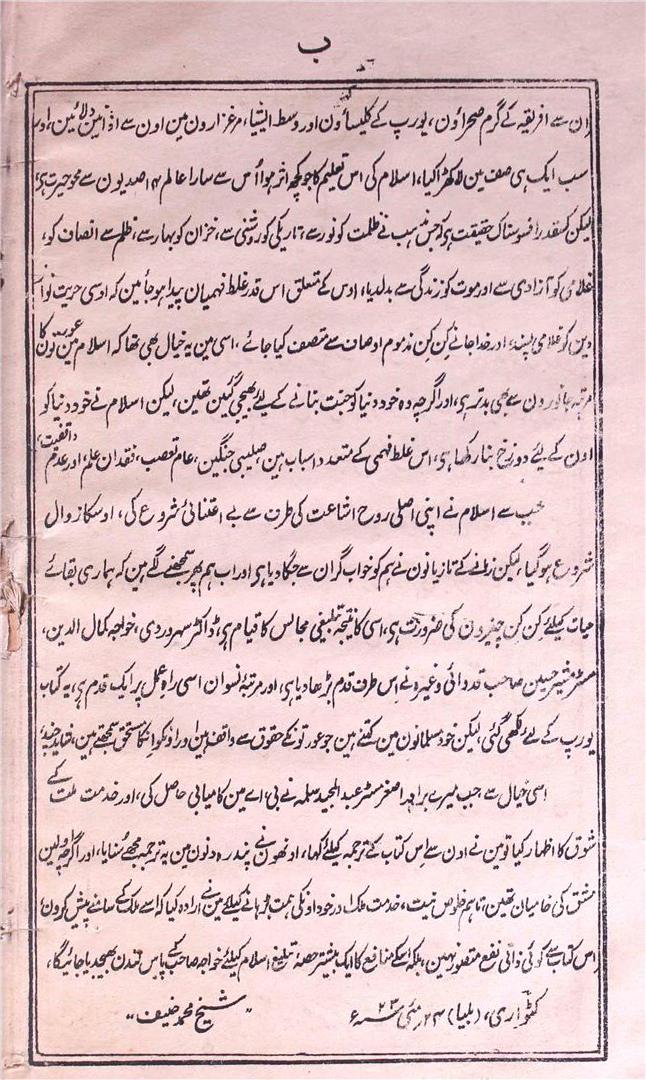 ب
ان سے افریقہ کے گرم صحراؤن، یورپ کے کلیساؤن اور وسط ایشیا، مرغزارون مین اون سے اذانین دلائین، اوس
سب ایک ہی صف مین لا کھڑا کیا، اسلام کی اس تعلیم کا جو کچھ اثر ہوا اُس سے سارا عالم صدیون سے محو حیرت ہی،
لیکن کسقدر افسوسناک حقیقت ہی کہ جس مذہب نے ظلمت کو نور سے، تاریکی کو روشنی سے، خزان کو بہار سے، ظلم سے انصاف کو،
غلامی کو آزادی سے اور موت کو زندگی سے بدلدیا، اوس کے متعلق اس قدر غلط فہمیان پیدا ہو جائین کہ اوسی حریت نواز
دین کو غلامی پسند، اور خدا جانے کِن کِن مذموم اوصاف سے متصف کیا جائے، اسی مین یہ خیال بھی تھا کہ اسلام مین عورتون کا
مرتبہ جانورون سے بھی بدتر ہی، اور اگرچہ وہ خود دنیا کو جنت بنانے کے لیئے بھیجی گئین تھین، لیکن اسلام نے خود دنیا کو
اون کے لیئے دوزخ بنا رکھا ہی، اس غلط فہمی کے متعدد اسباب ہین صلیبی جنگین، عام تعصب، فقدان علم، اور عدم واقفیت،
جب سے اسلام نے اپنی اصلی روح اشاعت کی طرف سے بے اعتنائی شروع کی، اوسکا زوال
شروع ہو گیا، لیکن زمانے کے تازیانون نے ہم کو خواب گران سے جگا دیا ہی اور اب ہم پھر سمجھنے لگے ہین کہ ہماری بقائے
حیات کیلئے کن کن چیزون کی ضرورت ہی، اسی کا نتیجہ تبلیغی مجالس کا قیام ہی، ڈاکٹر سہروردی، خواجہ کمال الدین،
مسٹر مشیر حسین صاحب قدوائی وغیرہ نے اِس طرف قدم بڑھا دیا ہی، اور مرتبۂ نسوان اسی راہِ عمل پر ایک قدم ہی، یہ کتاب
یورپ کے لیئے لکھی گئی، لیکن خود مسلمانون مین کتنے ہین جو عورتونکے حقوق سے واقف ہین اور اونکو اِنکا مستحق سمجھتے ہین،
اسی خیال سے جب میرے برادر اصغر مسٹر عبد المجید سلمہ نے بی، اے مین کامیابی حاصل کی، اور خدمت ملت کے
شوق کا اظہار کیا تو مین نے اون سے اِس کتاب کے ترجمہ کیلئے کہا، اونھون نے پندرہ دنون مین یہ ترجمہ مجھے سُنایا، اور اگرچہ اولین
مشق کی خامیان تھین، تاہم خلوص نیت، خدمت ملک اور خود اونکی ہمت بڑھانے کیلئے مین نے ارادہ کیا کہ اسے ملک کے سامنے پیش کرون،
اس کتاب سے کوئی ذاتی نفع متصور نہین، بلکہ اسکے منافع کا ایک بیشتر حصہ تبلیغ اسلام کیلئے خواجہ صاحب کے پاس لندن بھیجدیا جائیگا،
(بلیا) ۲۴ مئی ۲۳ء
"شیخ محمد حنیف"